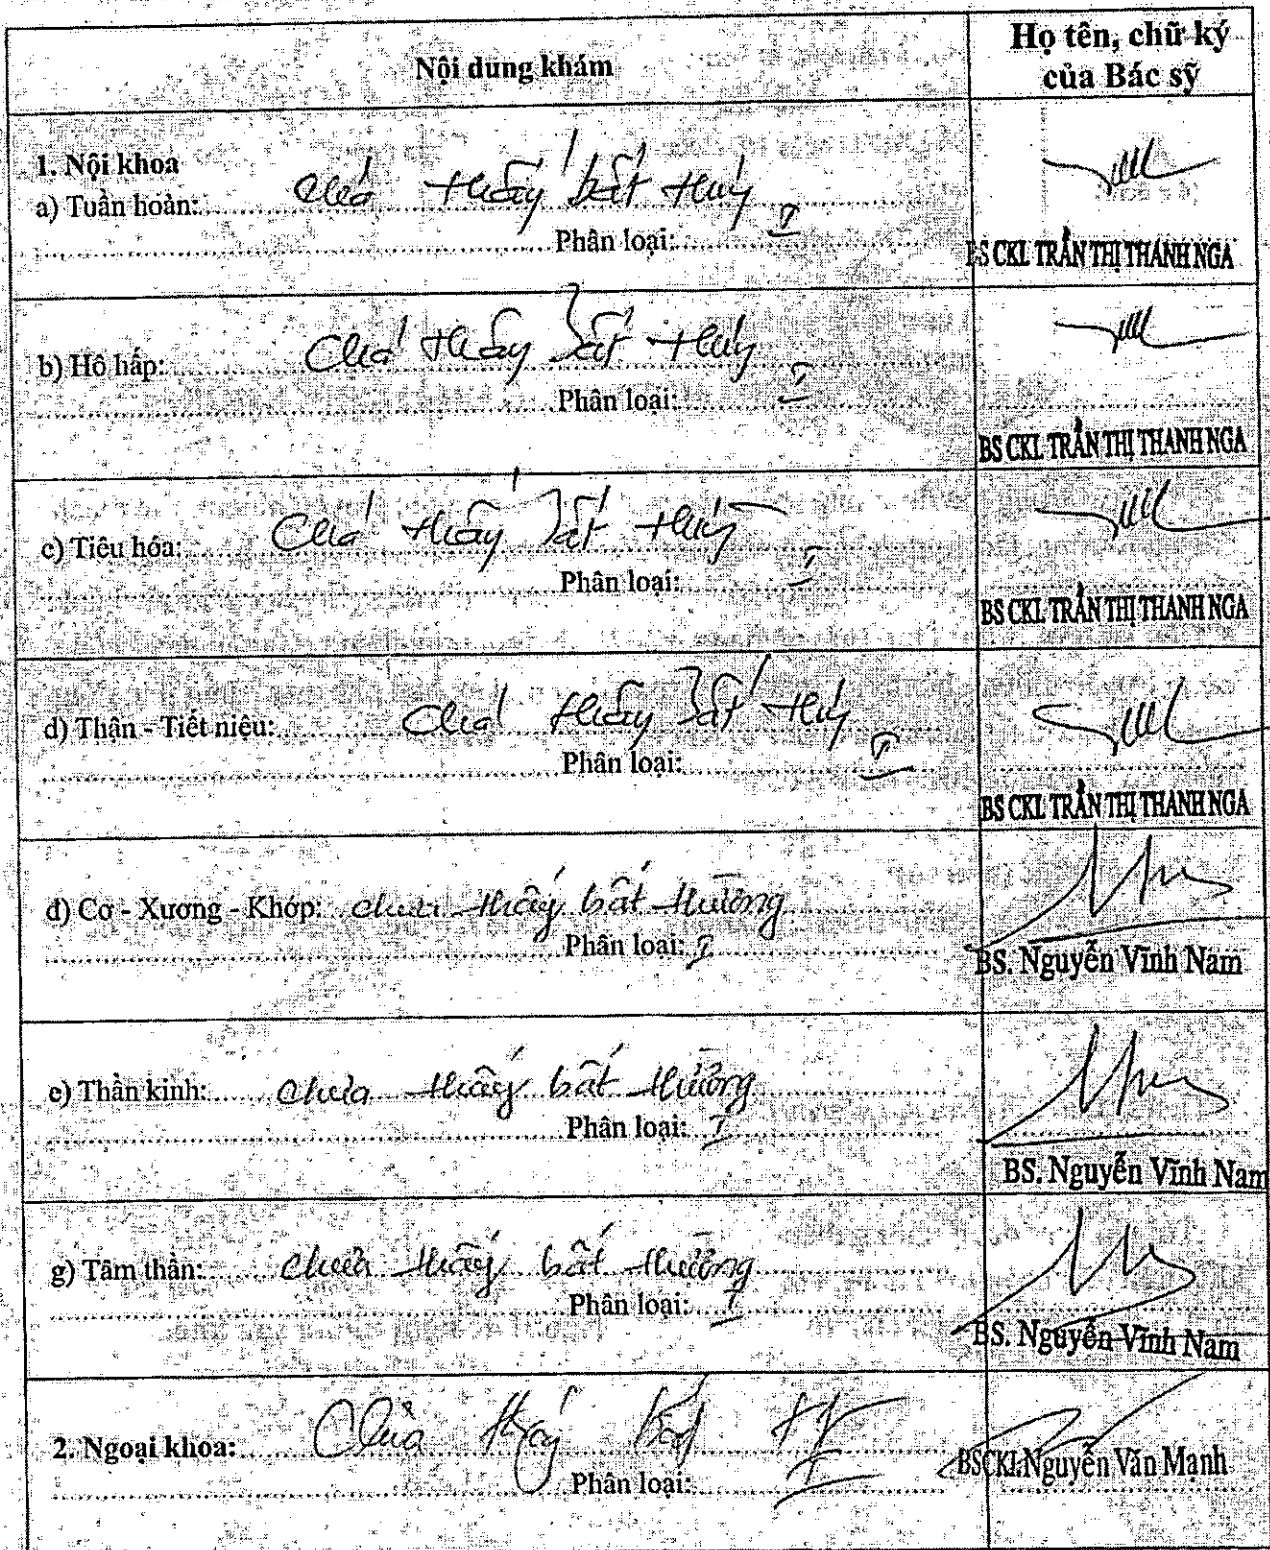 Nội dung khám
Họ tên, chữ ký
của Bác sỹ
1. Nội khoa
a) Tuần hoàn: Chưa thấy bất thường
Phân loại: I
BS CKI. TRẦN THỊ THANH NGA
b) Hô hấp: Chưa thấy bất thường
Phân loại: I
BS CKI. TRẦN THỊ THANH NGA
c) Tiêu hóa: Chưa thấy bất thường
Phân loại: I
BS CKI. TRẦN THỊ THANH NGA
d) Thận - Tiết niệu: Chưa thấy bất thường
Phân loại: I
BS CKI. TRẦN THỊ THANH NGA
d) Cơ - Xương - Khớp: chưa thấy bất thường
Phân loại: I
BS. Nguyễn Vĩnh Nam
e) Thần kinh: chưa thấy bất thường
Phân loại: I
BS. Nguyễn Vĩnh Nam
g) Tâm thần: chưa thấy bất thường
Phân loại: I
BS. Nguyễn Vĩnh Nam
2. Ngoại khoa: Chưa thấy bất
Phân loại: I
BSCKI. Nguyễn Văn Mạnh